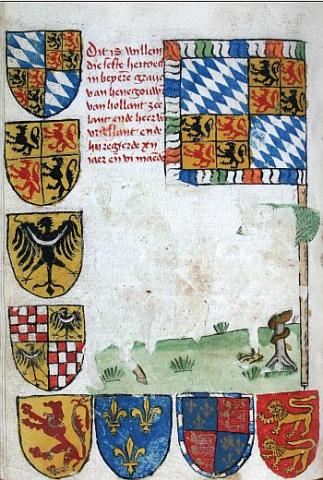 Dit is Willem
die seste hertoech
in beyere grave
van henegouwe
van hollant zee
lant ende heer va
vrieslant ende
hi regierde xij
iaer en vi maede